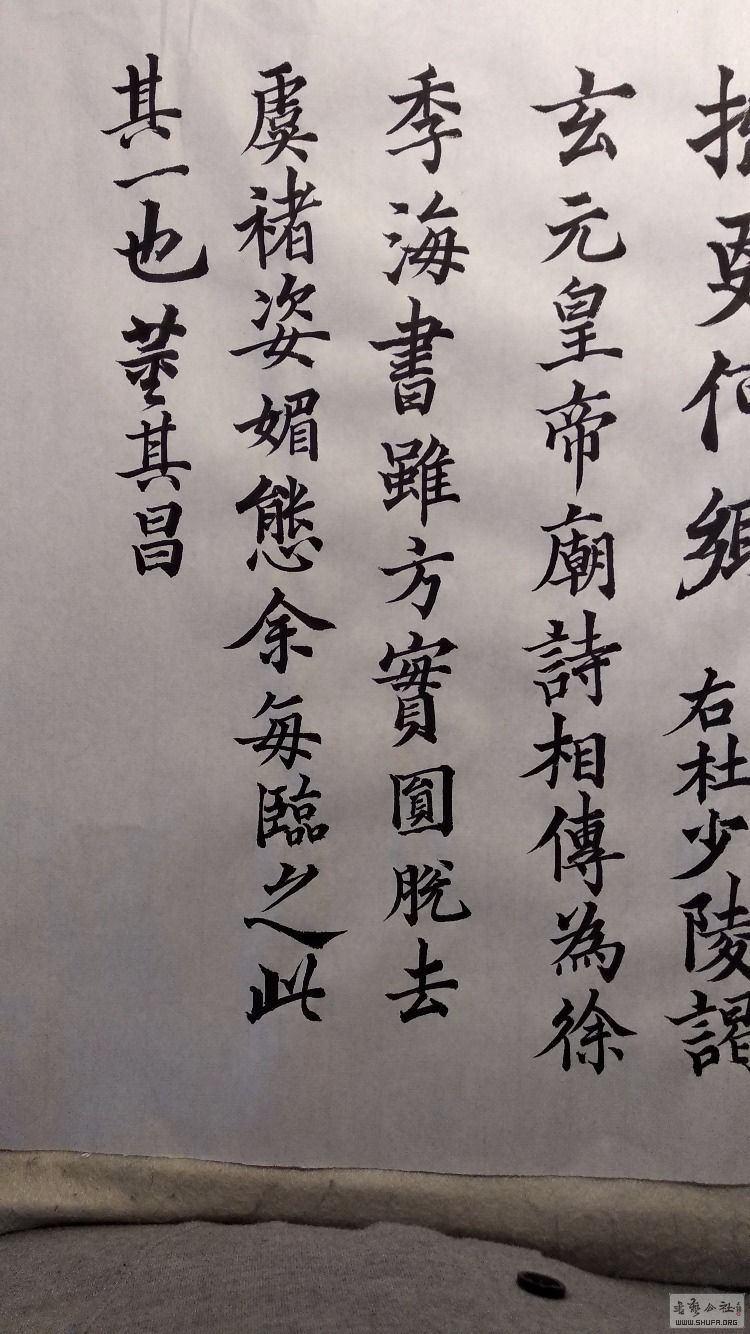 拙更何鄉　右杜少陵謁
玄元皇帝廟詩相傳為徐
季海書雖方實圓脫去
虞褚姿媚態余每臨之此
其一也董其昌
WWW.SHUFA.ORG